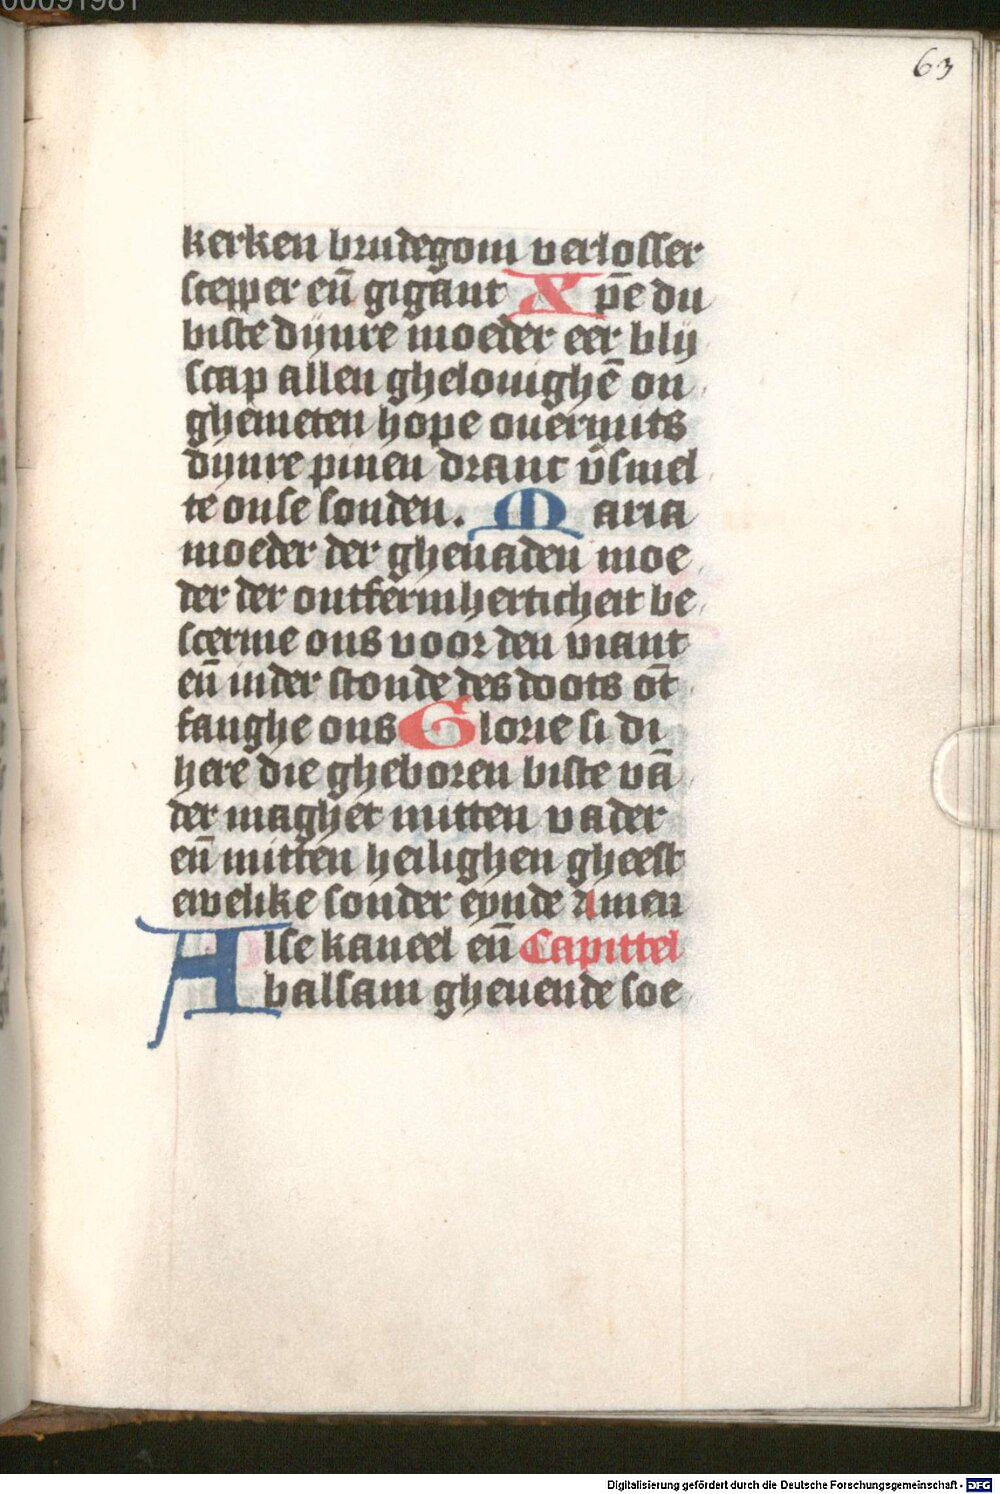 00091981
63
kerken brudegom verlosser
scepper eñ gigant Xpe᷒ du
biste dijnre moeder eer blij
scap allen ghelouighē on
ghemeten hope ouermits
dijnre pinen dranc v̄smel
te onse sonden. Maria
moeder der ghenaden moe
der der ontfermherticheit be
scerme ons voor den viant
eñ inder stonde des doots ōt
fanghe ons Glorie si di
here die gheboren biste vā
der maghet mitten vader
eñ mitten heilighen gheest
ewelike sonder eynde amen
Alse kaneel eñ Capittel
balsam gheuende soe
Digitalisierung gefördert durch die Deutsche Forschungsgemeinschaft - DFG